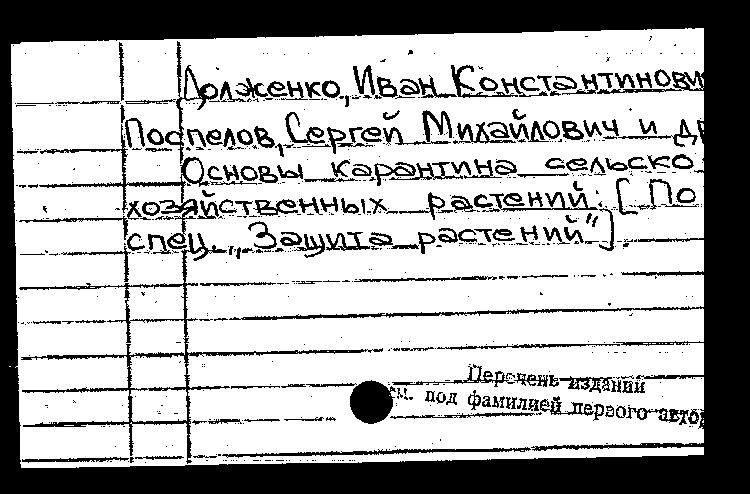 Долженко, Иван Константинови
Поспелов, Сергей Михайлович и др
Основы карантина сельско-
хозяйственных растений: [По
спец. „Защита растений"].
Перечень изданий
см. под фамилией первого автор